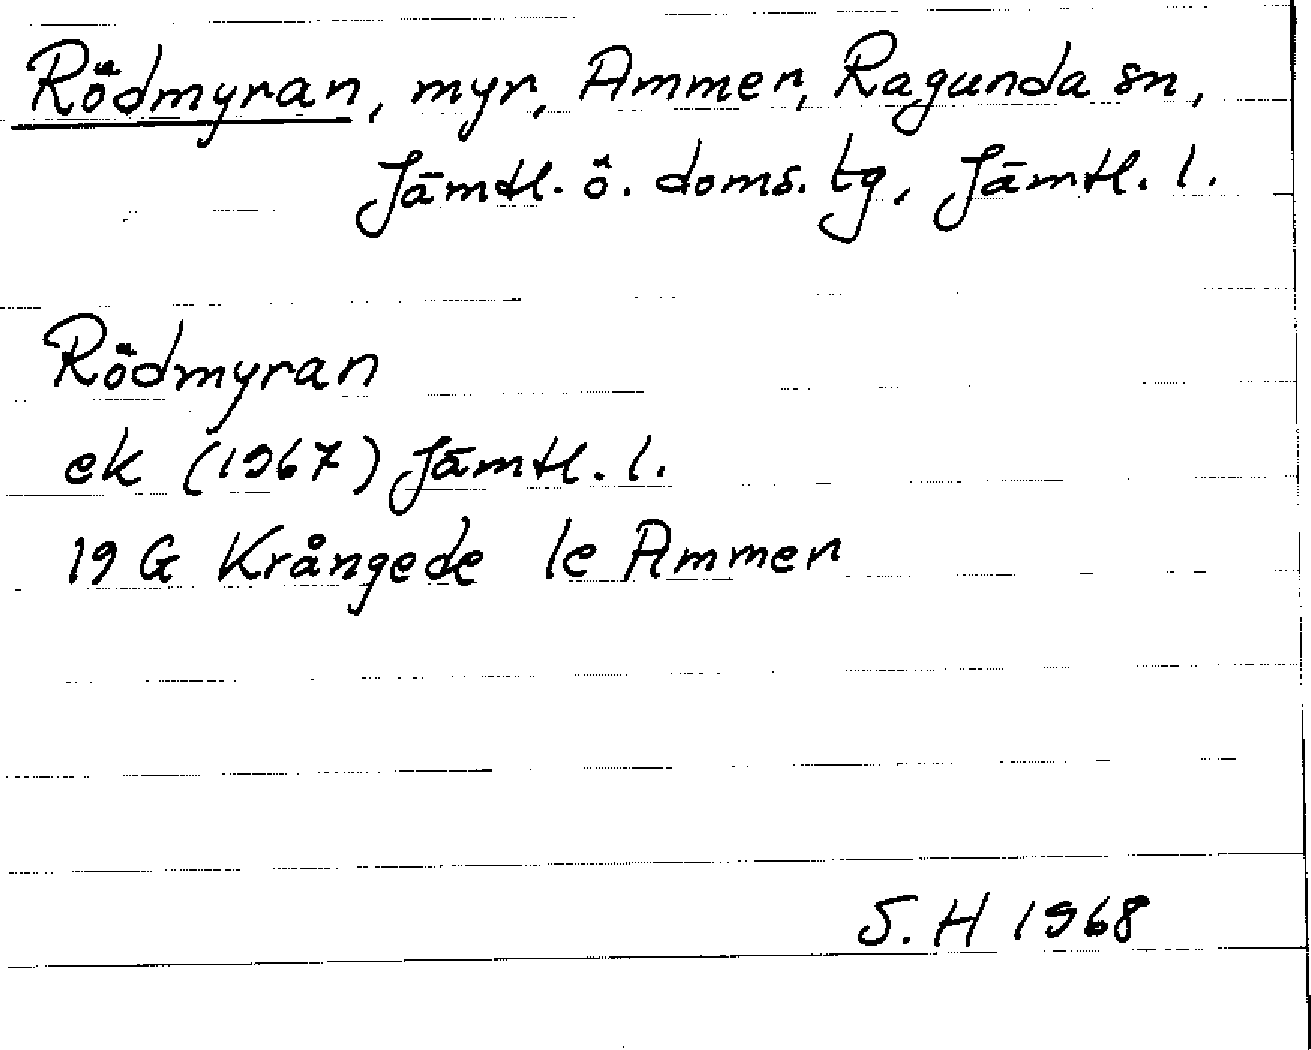 Rödmyran, myr, Ammer, Ragunda sn,
Jämtl. ö. doms. tg, Jämtl. l.
Rödmyran
ek (1967) Jämtl. l.
19 G Krångede le Ammer
S. H 1968